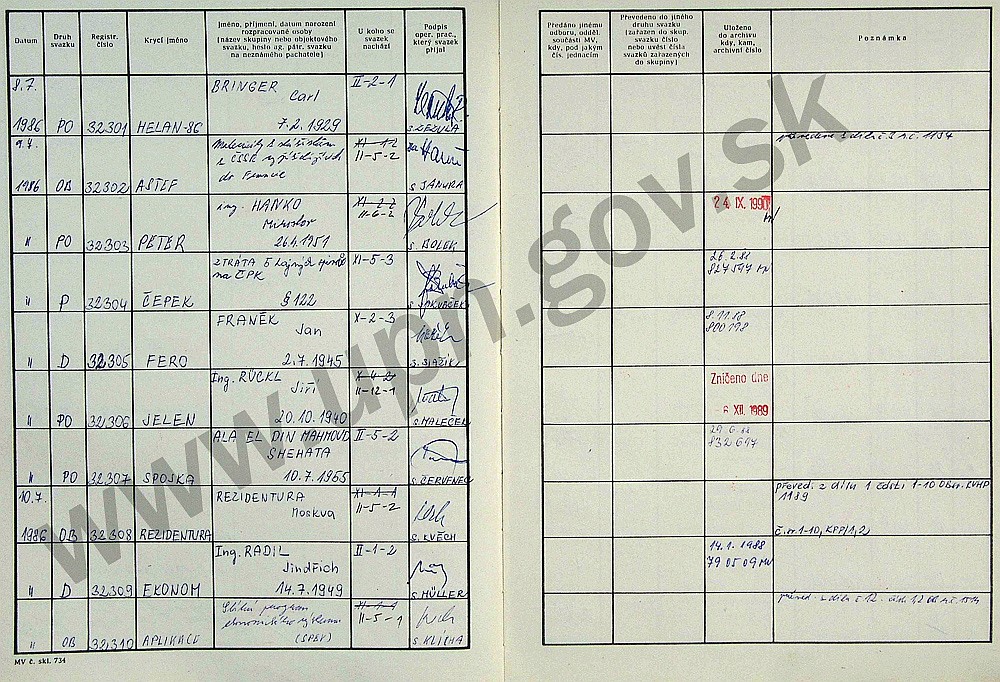 Datum
Druh svazku
Registr. číslo
Krycí jméno
Jméno, příjmení, datum narození rozpracované osoby (název skupiny nebo objektového svazku, heslo ag. pátr. svazku na neznámého pachatele)
U koho se svazek nachází
Podpis oper. prac., který svazek přijal
Předáno jinému odboru, odděl. součásti MV, kdy, pod jakým čís. jednacím
Převedeno do jiného druhu svazku (zařazen do skup. svazku číslo nebo uvést čísla svazků zařazených do skupiny)
Uloženo do archivu kdy, kam, archivní číslo
Poznámka
8.7. BRINGER II-2-1
Carl
1986 PO 32301 HELAN-86 7.2.1929 S. ZEZULA
9.7. XI-12
II-5-2
1986 OB 32302 ASTEF do Francie S JANURA
ing. HANKO XI-22 24. IX. 1990
Miroslav II-6-2
" PO 32303 PETER 26.4.1951 S. BOLEK
ZTRÁTA 5 XI-5-3 26.2.88
na ČPK 827597
" P 32304 ČEPEK § 122
FRANĚK X-2-3 8.11.88
Jan 800198
" D 32305 FERO 2.7.1945
Ing. RÜCKL X-4-2 Zničeno dne
Jiří II-12-1
" PO 32306 JELEN 20.10.1940 S MALEČEK - 6 XII. 1989
ALA EL DIN MAHMOUD II-5-2 29.6.88
SHEHATA 832697
" PO 32307 SPOJKA 10.7.1965 S. ČERVENEC
10.7. REZIDENTURA XI-1-1 převed. z dílu 1 části 1-10
Moskva II-5-2 1189
1986 OB 32308 REZIDENTURA S. KVĚCH č.n.1-10, KPP/1,2)
Ing. RADIL II-1-2 14.1.1988
Jindřich 790509 MV
" D 32309 EKONOM 14.7.1949 S MÜLLER
Státní program XI-1-1
ekonomického výzkumu II-5-1
" OB 32310 APLIKACE (SPEV) S. KLÍCHA
MV č. skl. 734
www.upn.gov.sk